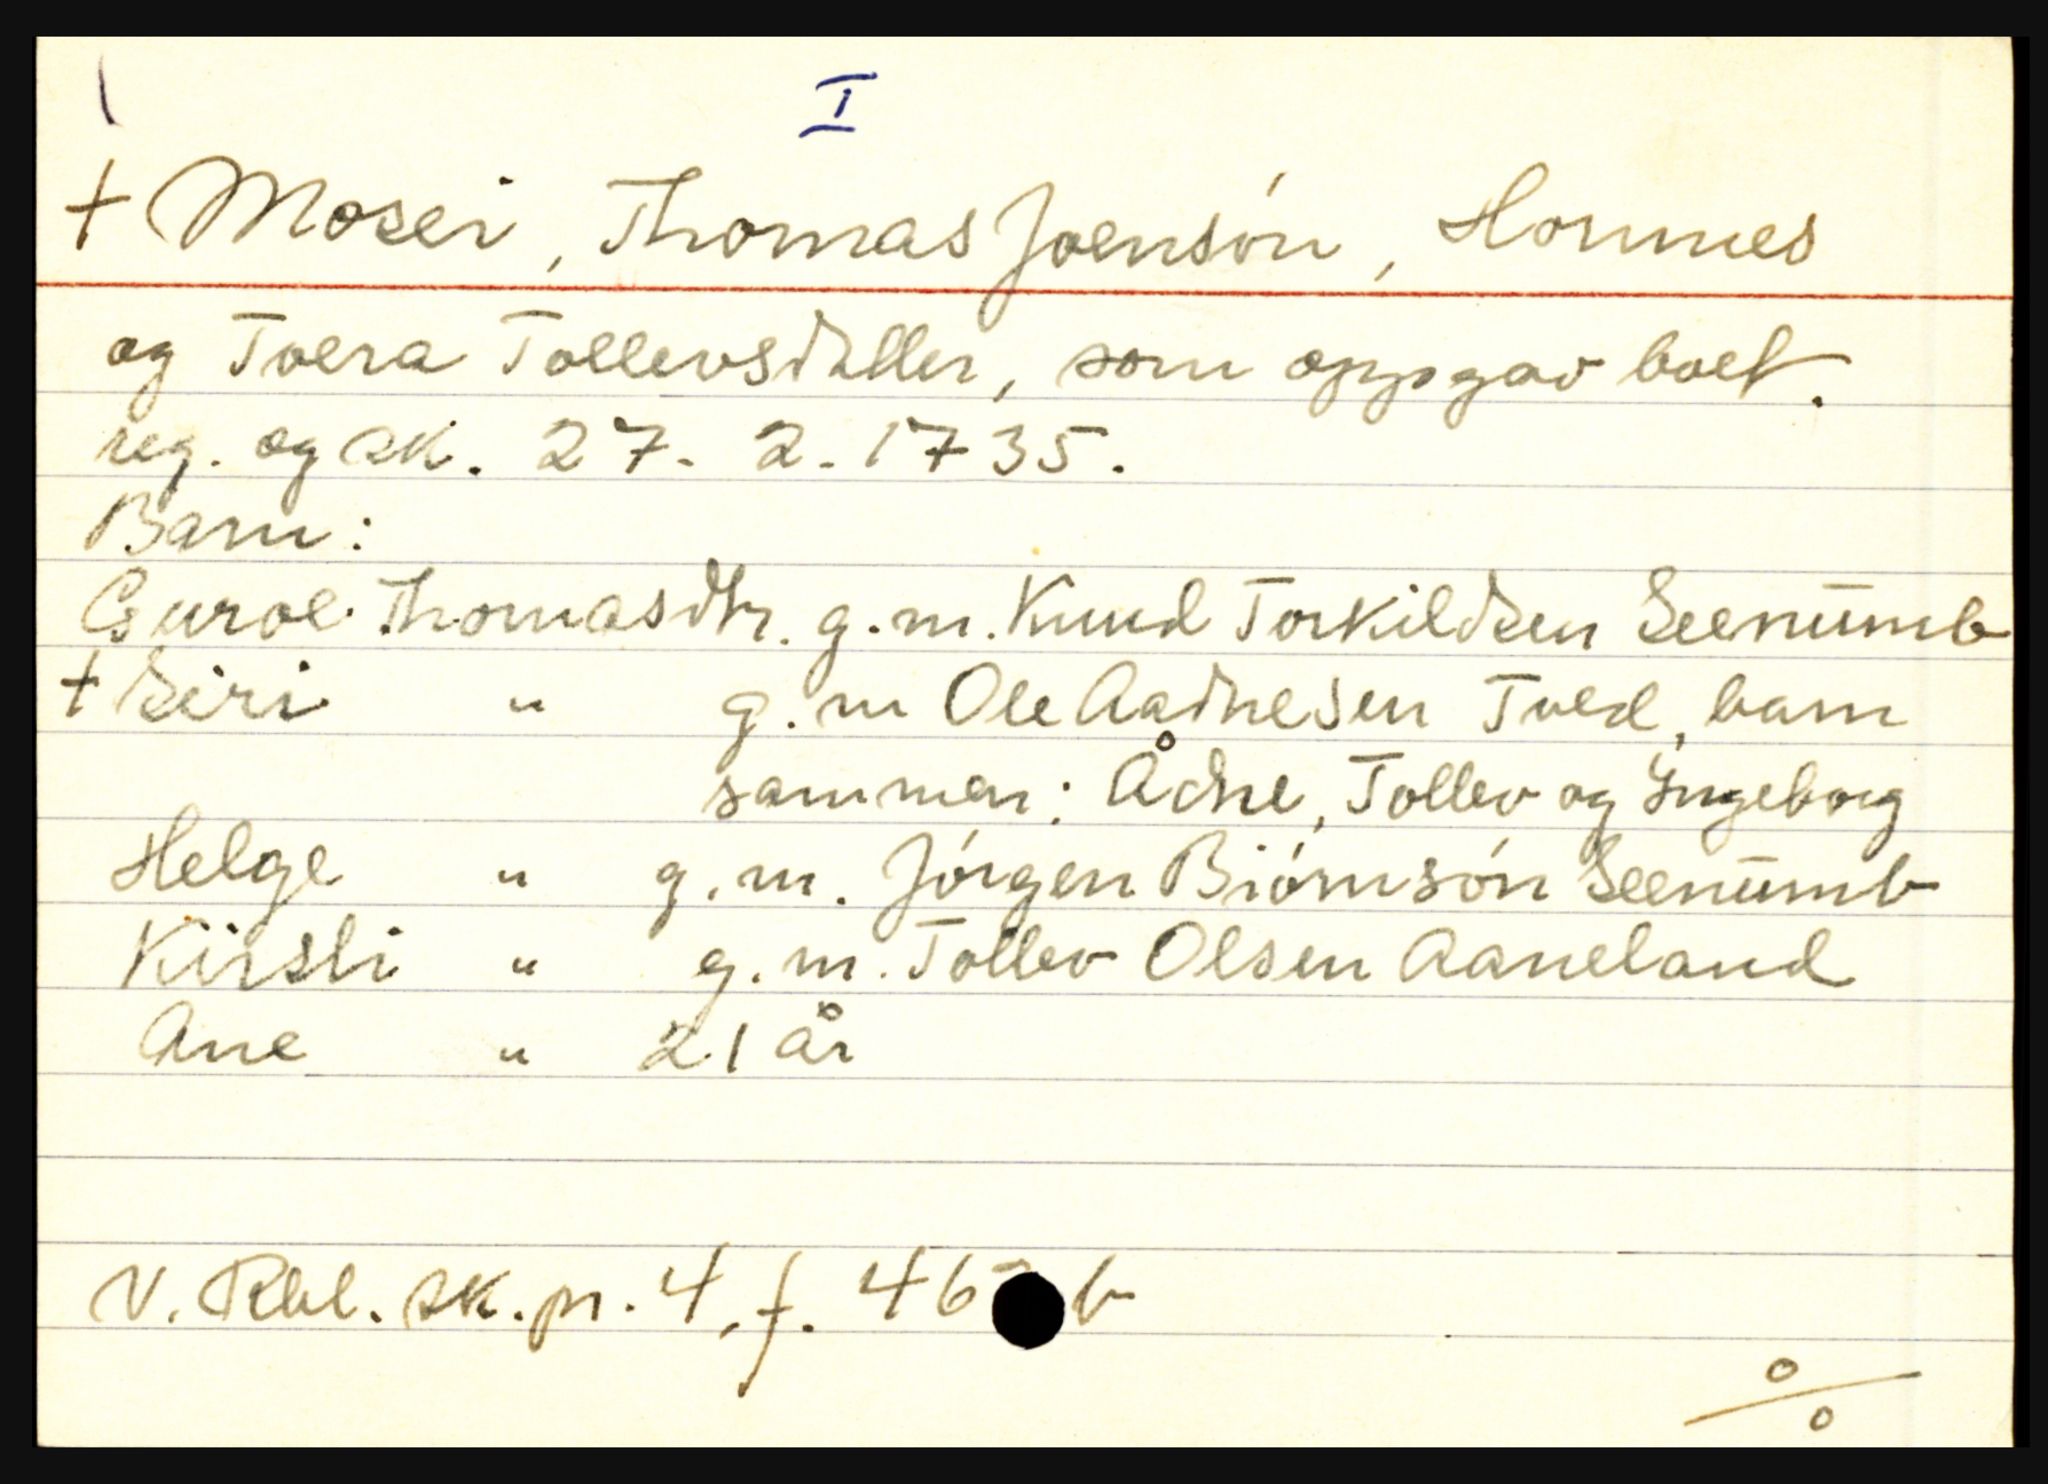 I
† Mosei, Thomas Joensón, Honnes
og Tvera Tollevsdatter, som oppgav boet.
reg. og sk. 27. 2. 1735.
Barn:
Guroe Thomasdtr. g.m. Knud Torkildsen Seenümb
† Siri " g.m Ole Aadnesen Tved, barn
sammen: Ådne, Tollev og Yngeborg
Helge " g.m. Jórgen Biórnsón Seenümb
Kirsti " g.m. Tollev Olsen Aaneland
Ane " 21 år
V. Rbl. sk.pr. 4, f. 46 b
o/o